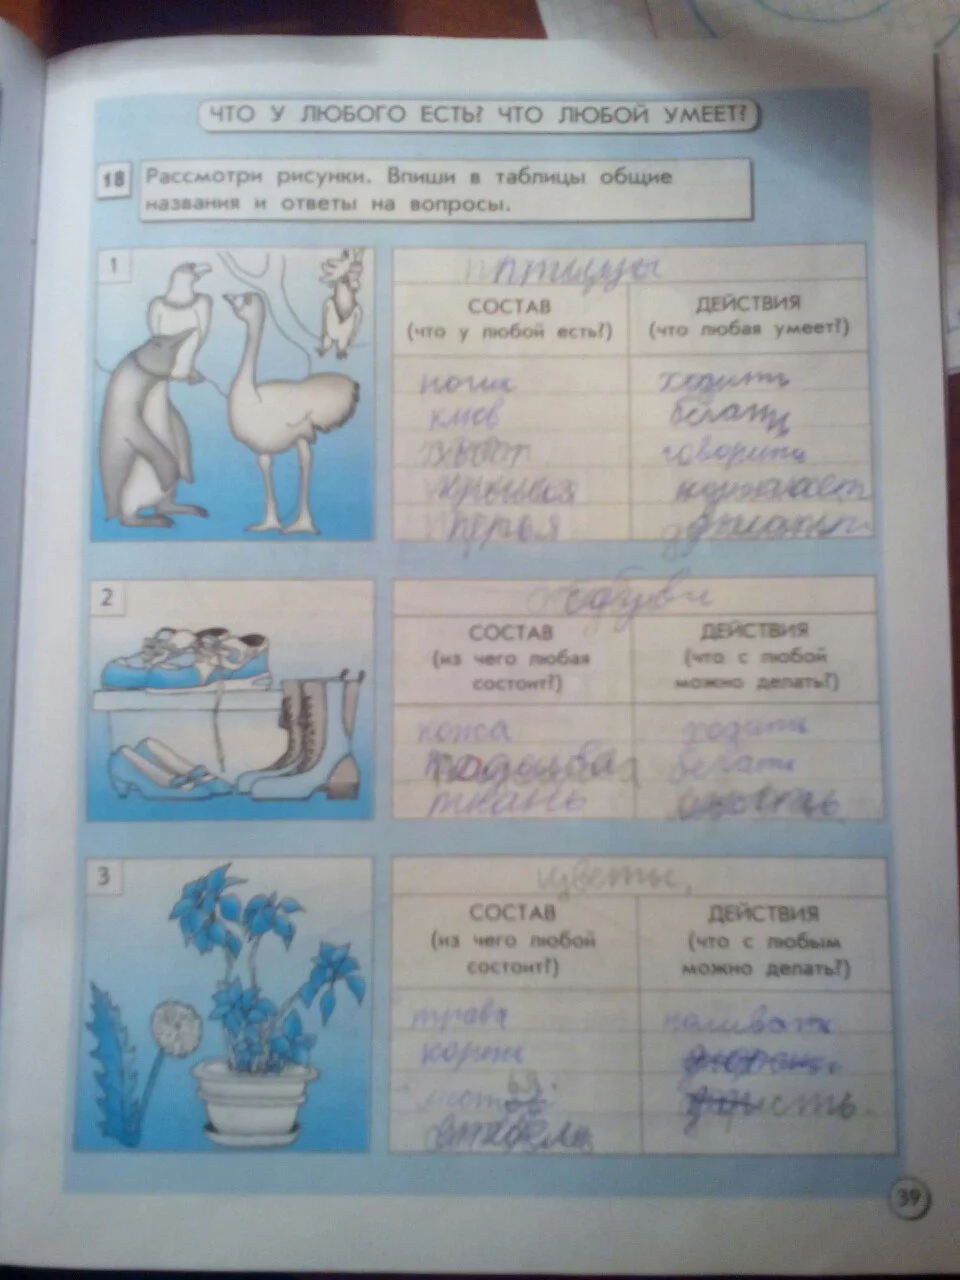 ЧТО У ЛЮБОГО ЕСТЬ? ЧТО ЛЮБОЙ УМЕЕТ?
18 Рассмотри рисунки. Впиши в таблицы общие
названия и ответы на вопросы.
1
птицы
СОСТАВ
(что у любой есть?)
ДЕЙСТВИЯ
(что любая умеет?)
ноги
клюв
хвост
крылья
перья
ходить
бегать
говорить
2
обуви
СОСТАВ
(из чего любая
состоит?)
ДЕЙСТВИЯ
(что с любой
можно делать?)
кожа
ткань
ходить
бегать
3
цветы
СОСТАВ
(из чего любой
состоит?)
ДЕЙСТВИЯ
(что с любым
можно делать?)
трава
поливать
39